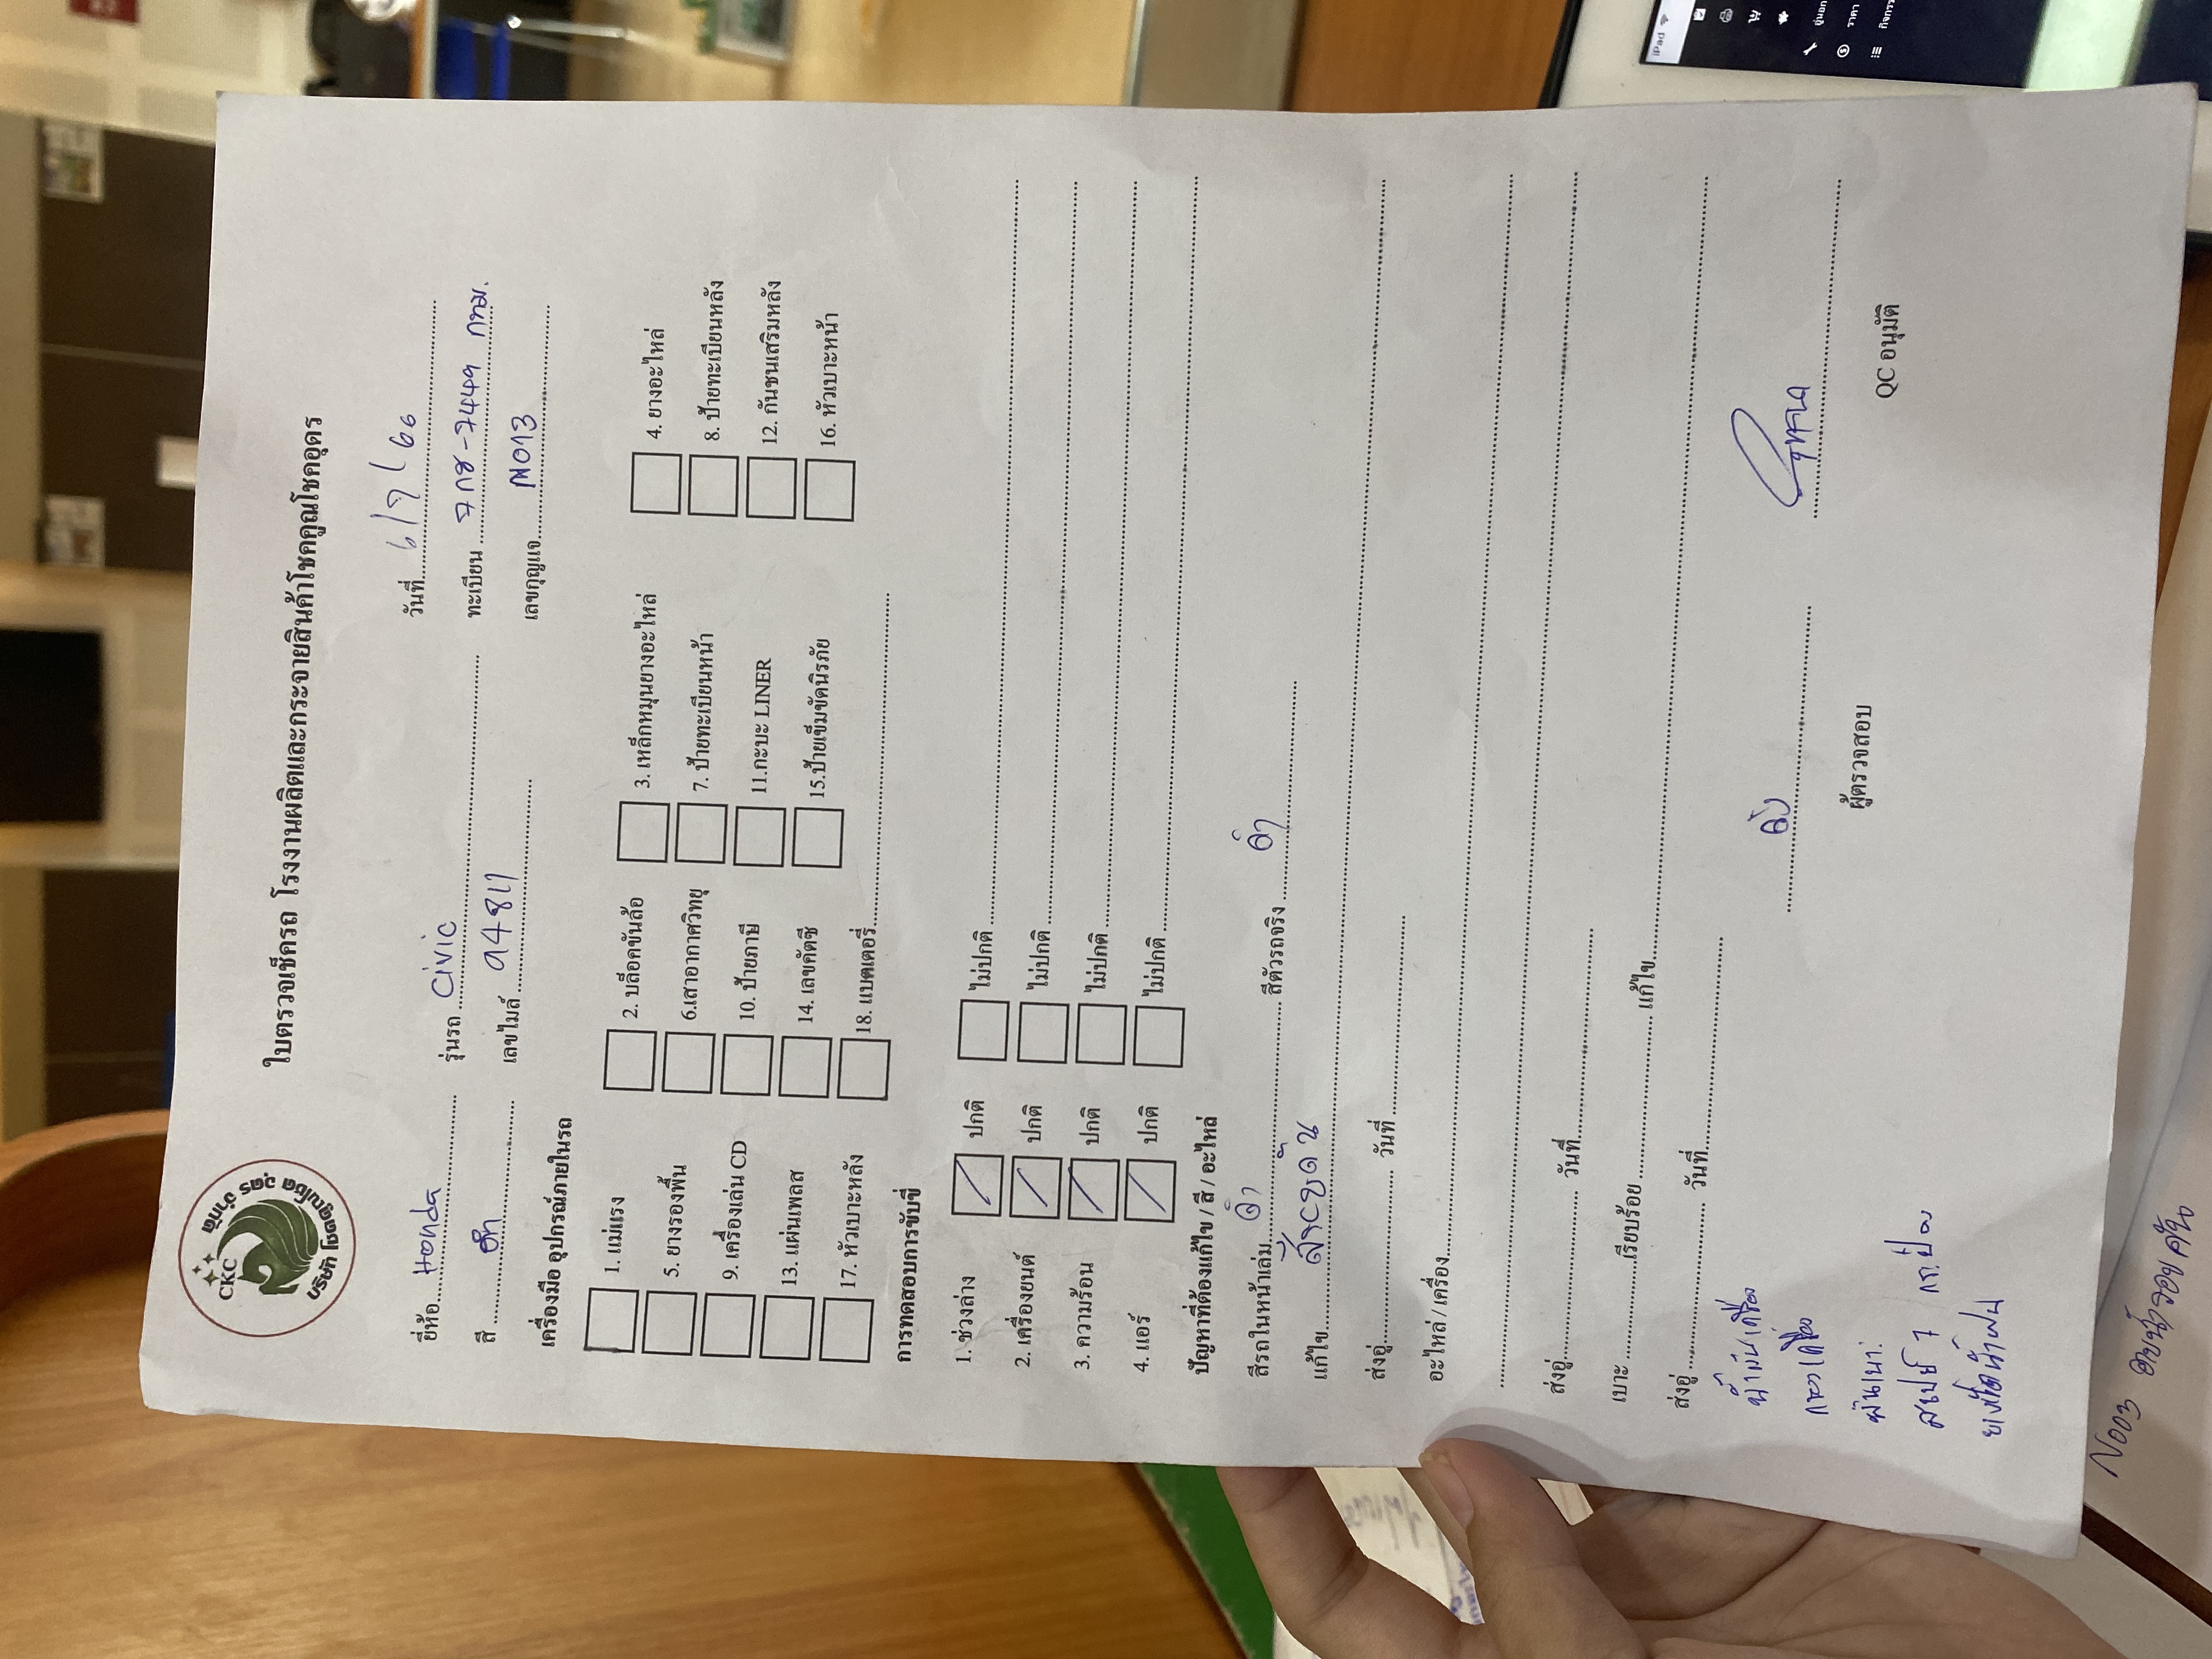 CKC
บริษัท โชคคูณโชค อุดร จำกัด
ใบตรวจเช็ครถ โรงงานผลิตและกระจายสินค้าโชคคูณโชคอุดร
วันที่ 6/7/66
ยี่ห้อ Honda รุ่นรถ Civic ทะเบียน 7กช-7449 กทม.
สี ดำ เลขไมล์ 94817 เลขกุญแจ N013
เครื่องมือ อุปกรณ์ภายในรถ
1. แม่แรง 2. บล็อคขันล้อ 3. เหล็กหมุนยางอะไหล่ 4. ยางอะไหล่
5. ยางรองพื้น 6.เสาอากาศวิทยุ 7. ป้ายทะเบียนหน้า 8. ป้ายทะเบียนหลัง
9. เครื่องเล่น CD 10. ป้ายภาษี 11.กะบะ LINER 12. กันชนเสริมหลัง
13. แผ่นเพลส 14. เลขคัดซี 15.ป้ายเข็มขัดนิรภัย 16. หัวเบาะหน้า
17. หัวเบาะหลัง 18. แบตเตอรี่
การทดสอบการขับขี่
1. ช่วงล่าง / ปกติ ไม่ปกติ
2. เครื่องยนต์ / ปกติ ไม่ปกติ
3. ความร้อน / ปกติ ไม่ปกติ
4. แอร์ / ปกติ ไม่ปกติ
ปัญหาที่ต้องแก้ไข / สี / อะไหล่
สีรถในหน้าเล่ม ดำ สีตัวรถจริง ดำ
แก้ไข
ส่งอู่ วันที่
อะไหล่ / เครื่อง
ส่งอู่ วันที่
เบาะ เรียบร้อย แก้ไข
ส่งอู่ วันที่
น้ำมันเครื่อง
กรองเครื่อง
สเปย์ 1 กระป๋อง
ยางปัดน้ำฝน
ผู้ตรวจสอบ QC อนุมัติ
N003
iPad
ราคา